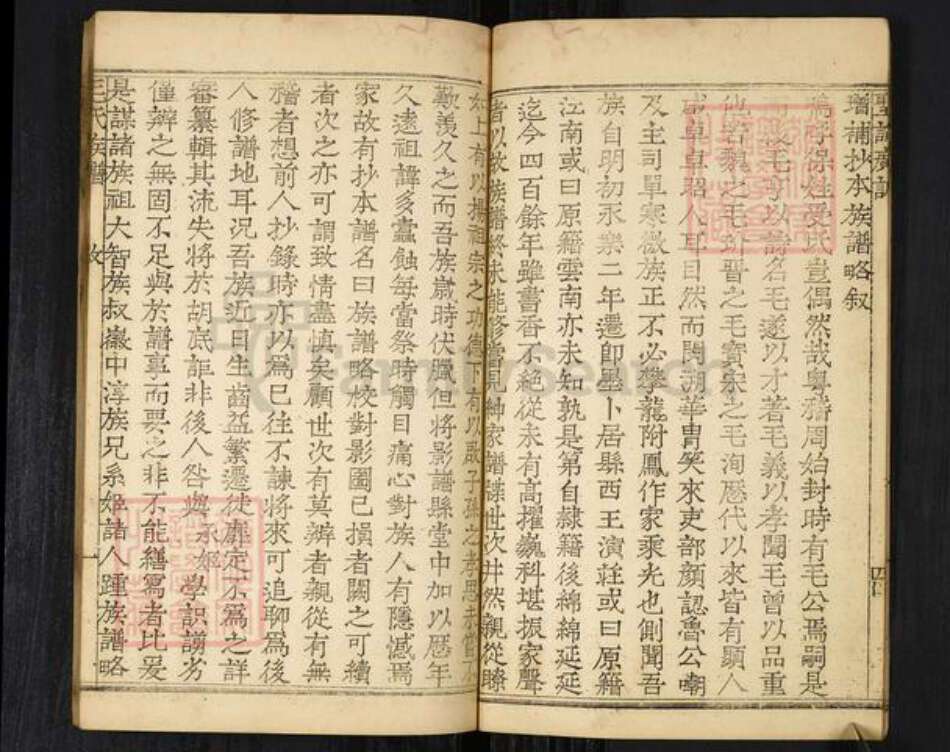 增補抄本族譜略叙
嗚呼得姓受氏豈偶然哉粵稽周始封時有毛公焉嗣是
毛亨以詩名毛遂以才著毛義以孝聞毛曾以品重
他若魏之毛玠晋之毛寶宋之毛洵歷代以來皆有顯人
昭人耳目然而閥閱華胄笑來吏部顔認魯公嘲
及主司單寒微族正不必攀龍附鳳作家乘光也側聞吾
族自明初永樂二年遷卽墨卜居縣西王演莊或曰原籍
江南或曰原籍雲南亦未知孰是第自隷籍後綿綿延延
迄今四百餘年雖書香不絕從未有高擢巍科堪振家聲
者以故族譜終未能修嘗見紳家譜諜世次井然親從瞭
如上有以揚祖宗之功德下有以啟子孫之孝思未嘗不
歎羨久之而吾族歲時伏臘但將影譜縣堂中加以歷年
久遠祖諱多蠹蝕每當祭時觸目痛心對族人有隱憾焉
家故有抄本譜名曰族譜略校對影圖已損者闕之可續
者次之亦可謂致情盡慎矣顧世次有莫辨者親從有無
稽者想前人抄錄時亦以爲已往不諫將來可追聊爲後
人修譜地耳况吾族近日生齒益繁遷徙靡定不爲之詳
審纂輯其流失將於胡底詎非後人咎與承姬學識謭劣
僅辨之無固不足與於譜事而要之非不能繕寫者比爰
是謀諸族祖大智族叔徽中淳族兄系姬諸人踵族譜略
毛氏族譜 叙